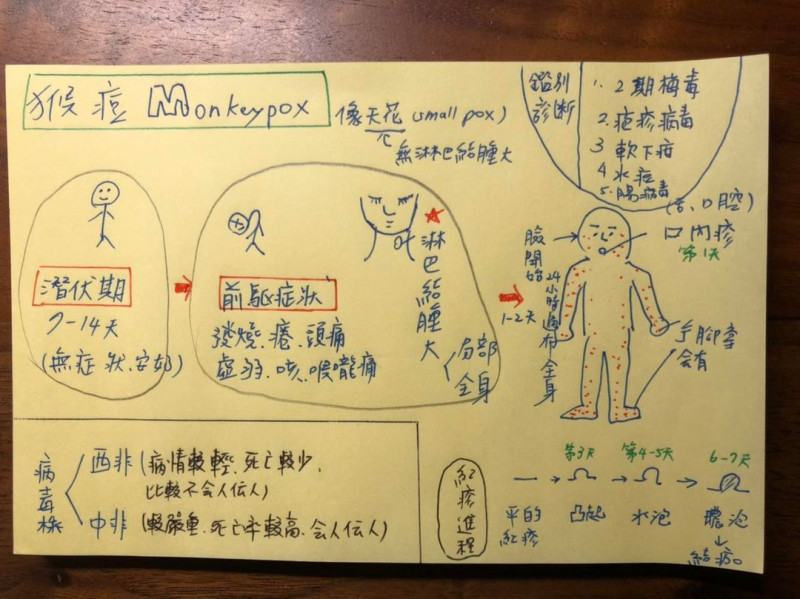 猴痘 Monkeypox
像天花(small pox)
無淋巴結腫大
鑑別
診斷
1. 2期梅毒
2. 疱疹病毒
3 軟下疳
4 水痘
5. 腸病毒
潛伏期
7-14天
(無症狀、安好)
前驅症狀
發燒、痠、頭痛
虛弱、咳、喉嚨痛
淋巴結腫大
局部
全身
1-2天
臉開始
24小時遍布全身
(舌、口腔)
口內疹
第1天
手腳掌
會有
病毒株
西非(病情較輕、死亡較少、
比較不會人传人)
中非(較嚴重、死亡率較高、会人传人)
紅疹進程
平的
紅疹
第3天
凸起
第4-5天
水泡
6-7天
膿泡
結痂